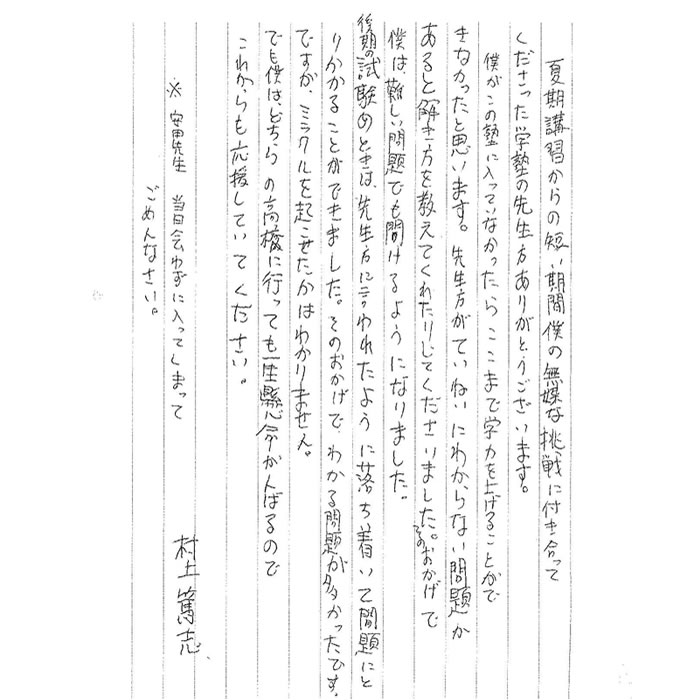 夏期講習からの短い期間僕の無謀な挑戦に付き合って
くださった学塾の先生方ありがとうございます。
僕がこの塾に入っていなかったらここまで学力を上げることがで
きなかったと思います。先生方がていねいにわからない問題が
あると解き方を教えてくれたりしてくださりました。そのおかげで
僕は、難しい問題でも開けるようになりました。
後期の試験のときは、先生方に言われたように落ち着いて問題にと
りかかることができました。そのおかげで、わかる問題が多かったです。
ですが、ミラクルを起こせたかはわかりません。
でも僕は、どちらの高校に行っても一生懸命がんばるので
これからも応援していてください。
※ 先生 当日会わずに入ってしまって
ごめんなさい。
村上 篤志